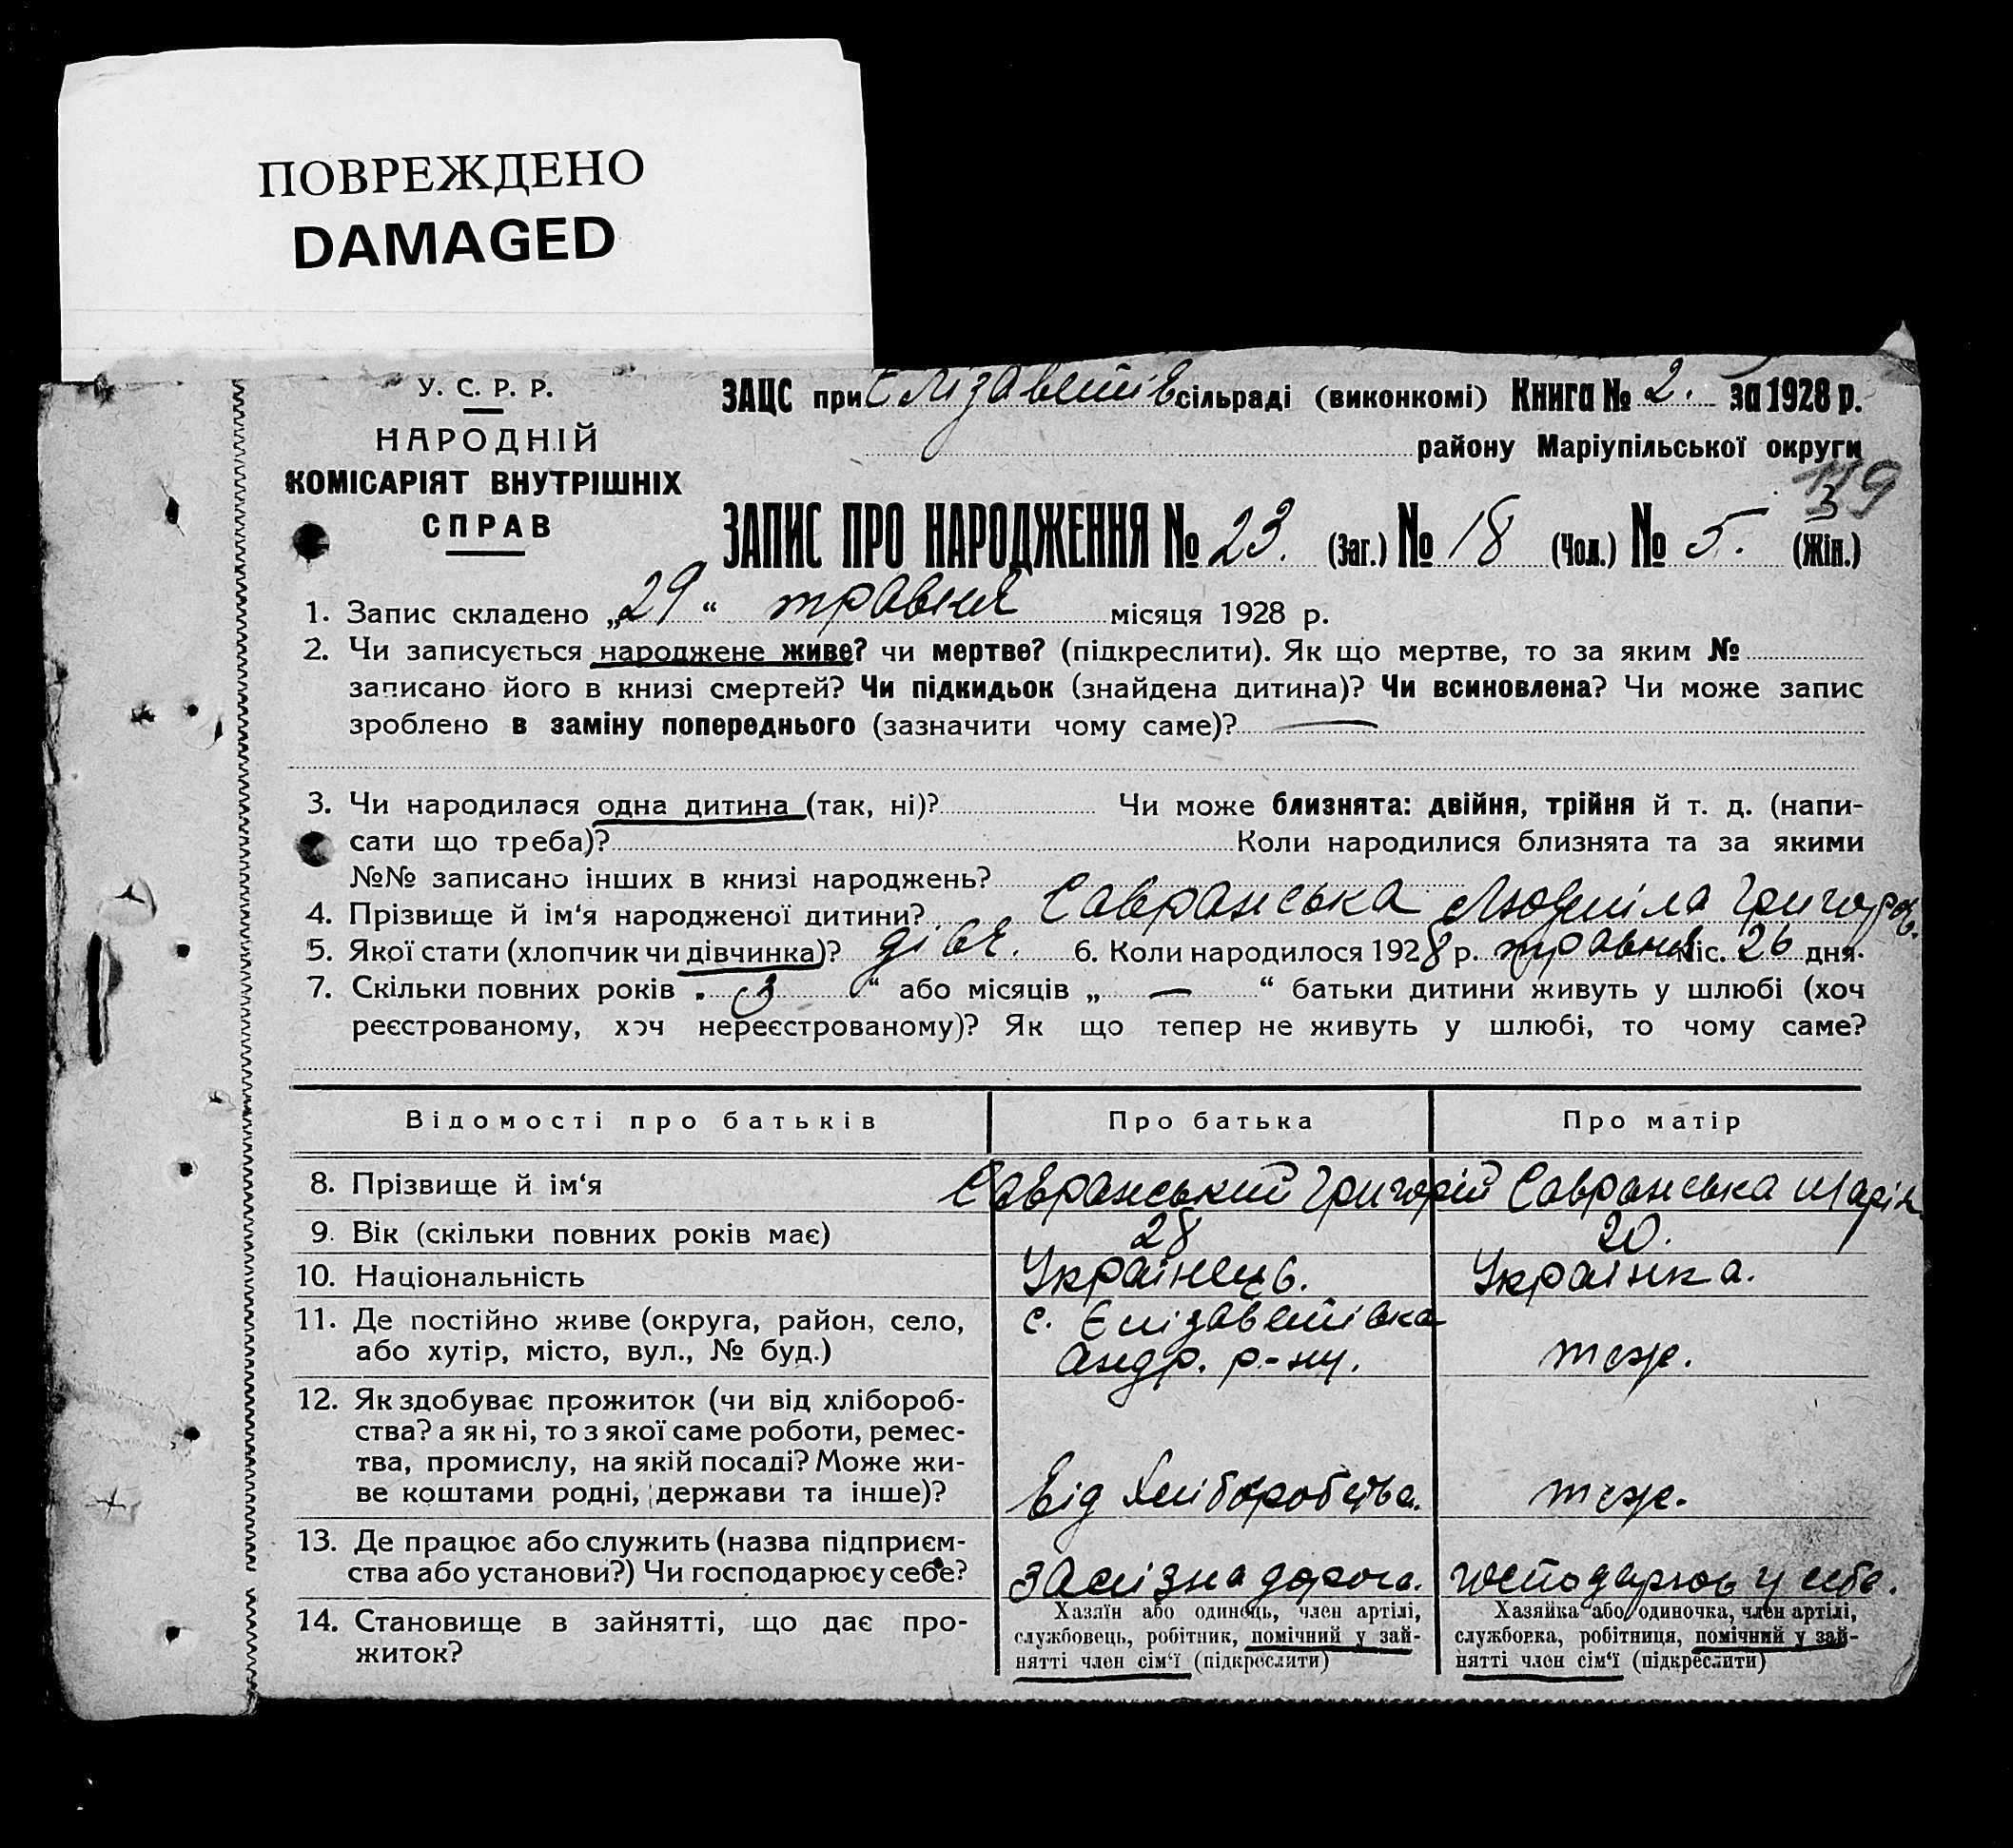 ПОВРЕЖДЕНО
DAMAGED
У. С. Р. Р.
НАРОДНІЙ
КОМІСАРІЯТ ВНУТРІШНІХ
СПРАВ
ЗАЦС при Єлізаветів сільраді (виконкомі) Книга № 2. за 1928 р.
району Маріупільської округи
119
3
ЗАПИС ПРО НАРОДЖЕННЯ № 23. (Заг.) № 18 (Чол.) № 5. (Жін.)
1. Запис складено „29“ травня місяця 1928 р.
2. Чи записується народжене живе? чи мертве? (підкреслити). Як що мертве, то за яким №
записано його в книзі смертей? Чи підкидьок (знайдена дитина)? Чи всиновлена? Чи може запис
зроблено в заміну попереднього (зазначити чому саме)? —
3. Чи народилася одна дитина (так, ні)? Чи може близнята: двійня, трійня й т. д. (напи-
сати що треба)? Коли народилися близнята та за якими
№№ записано інших в книзі народжень?
4. Прізвище й ім‘я народженої дитини? Савранська Людміла Григоров.
5. Якої стати (хлопчик чи дівчинка)? дівч. 6. Коли народилося 1928 р. травня міс. 26 дня.
7. Скільки повних років „ 3 “ або місяців „ — “ батьки дитини живуть у шлюбі (хоч
реєстрованому, хоч нереєстрованому)? Як що тепер не живуть у шлюбі, то чому саме?
Відомості про батьків Про батька Про матір
8. Прізвище й ім‘я Савранський Григорій Савранська Марія
9. Вік (скільки повних років має) 28 20.
10. Національність Українець. Українка.
11. Де постійно живе (округа, район, село, с. Єлізаветівка
або хутір, місто, вул., № буд.) Андр. р-ну. теж.
12. Як здобуває прожиток (чи від хлібороб-
ства? а як ні, то з якої саме роботи, ремес-
тва, промислу, на якій посаді? Може жи-
ве коштами родні, держави та інше)? Від Хліборобства. теж.
13. Де працює або служить (назва підприєм-
ства або установи?) Чи господарює у себе? Залізна дорога. господарює у себе.
14. Становище в зайнятті, що дає про-
житок?
Хазяїн або одинець, член артілі,
службовець, робітник, помічний у зай-
нятті член сім‘ї (підкреслити)
Хазяйка або одиночка, член артілі,
службовка, робітниця, помічний у зай-
нятті член сім‘ї (підкреслити)